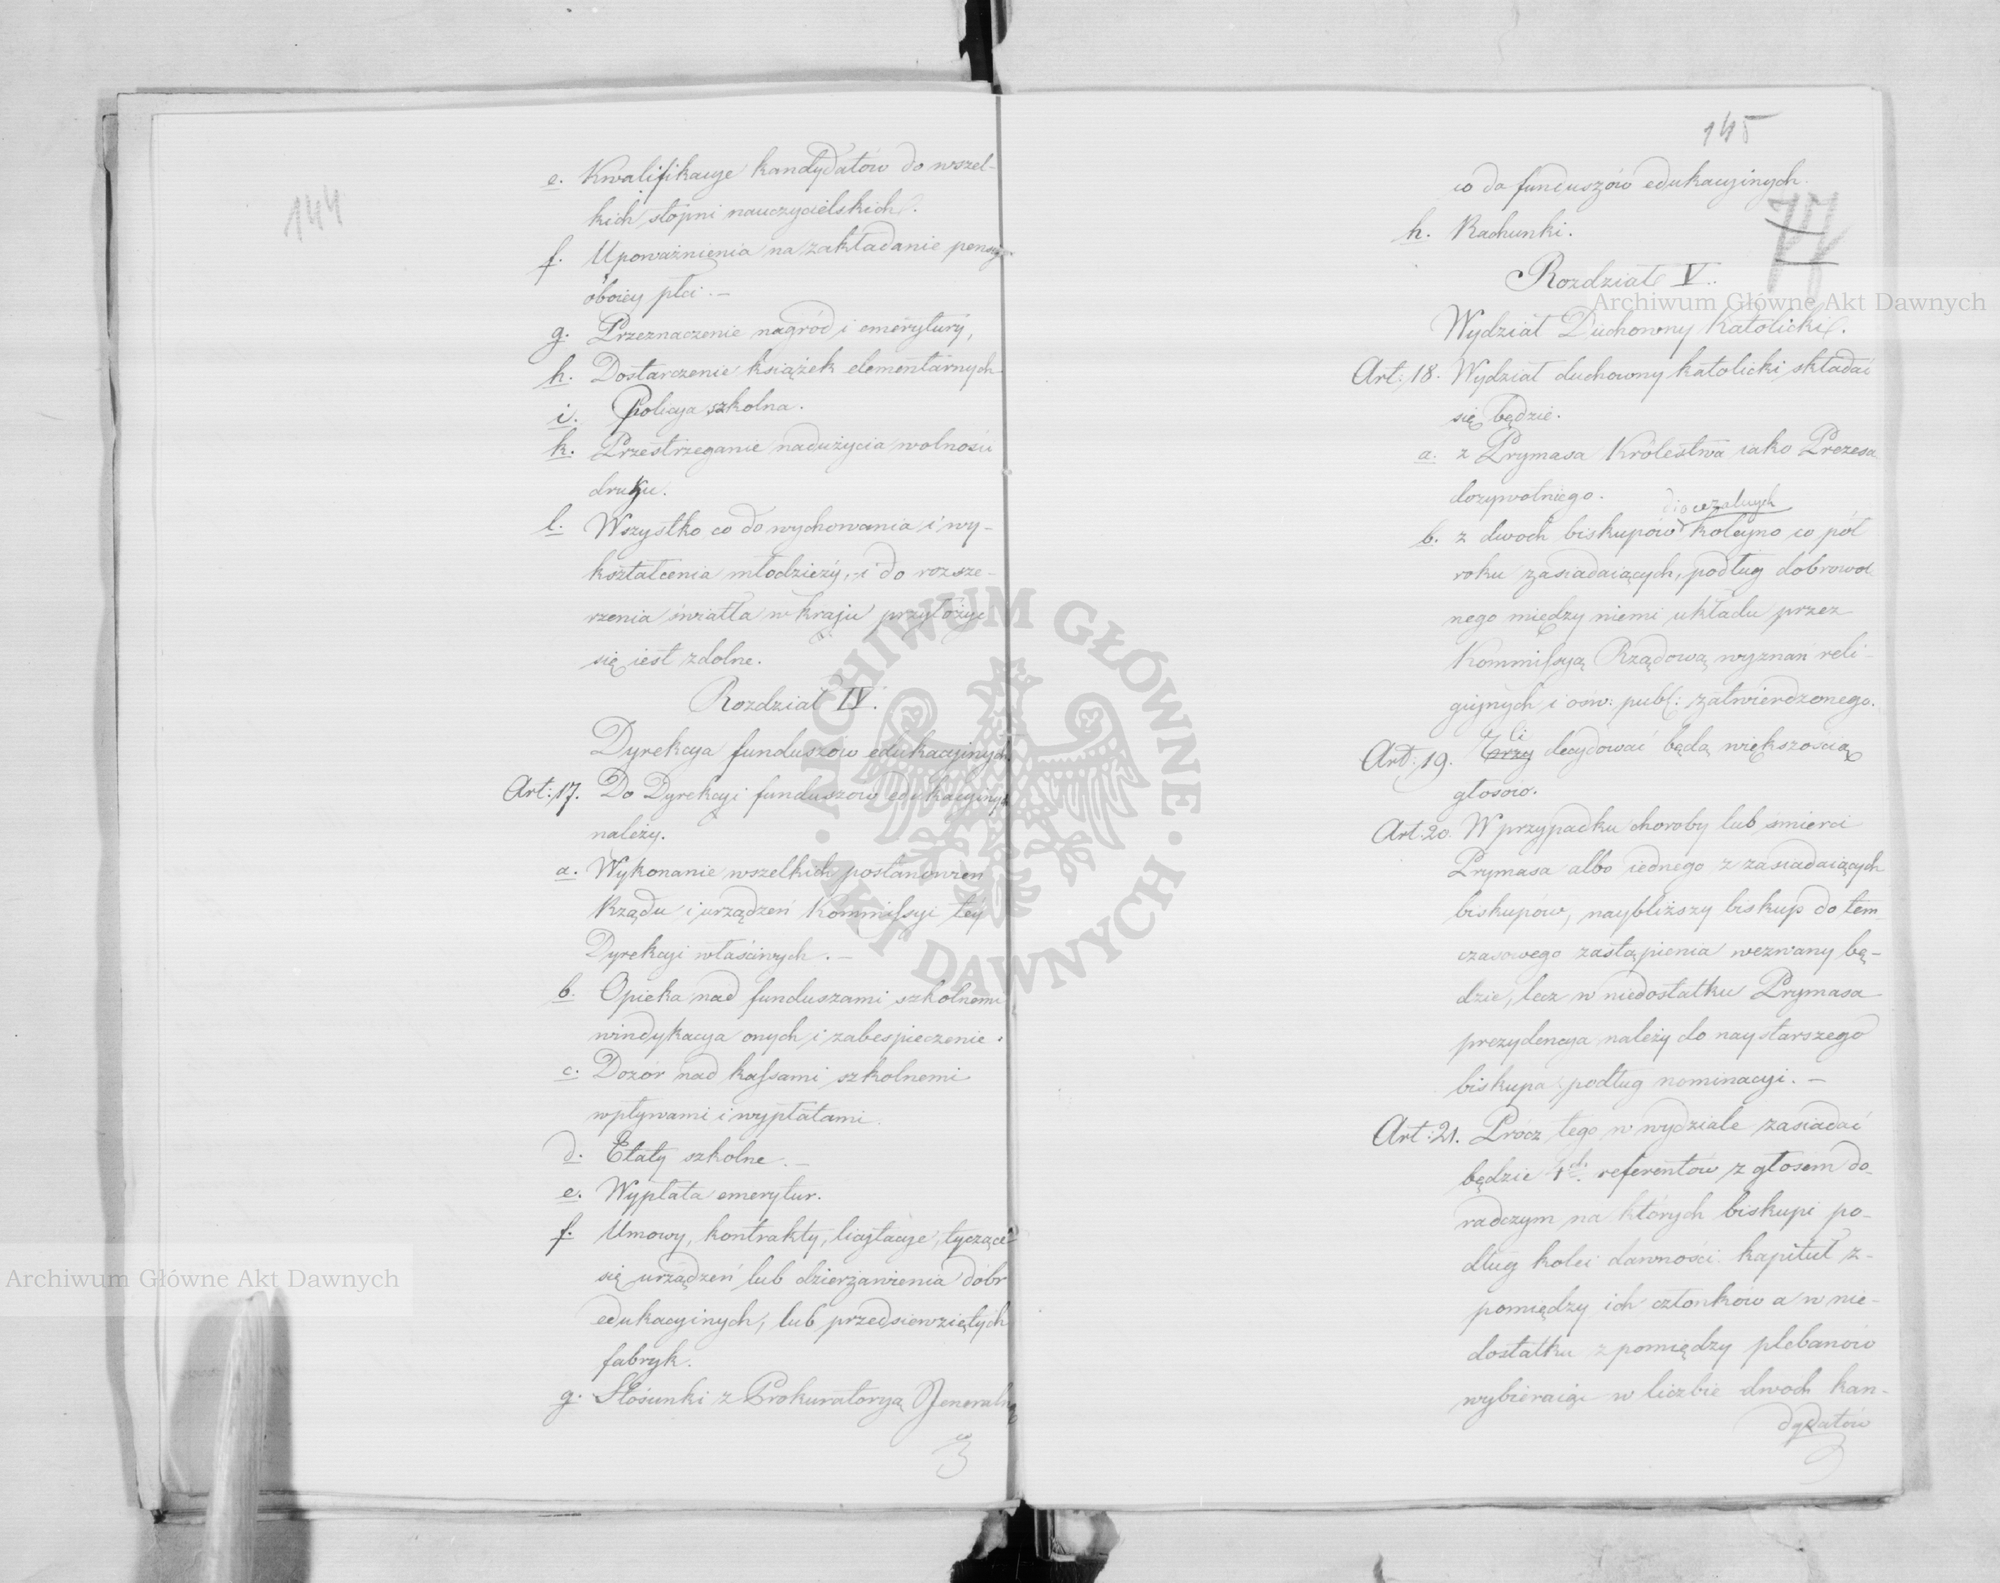 144
e. Kwalifikacye kandydatów do wszel-
kich stopni nauczycielskich.
f. Upoważnienia na zakładanie pensyi
oboiey płci. —
g. Przeznaczenie nagród i emerytury,
h. Dostarczenie książek elementarnych
i. Policya szkolna.
k. Przestrzeganie nadużycia wolności
druku.
l. Wszystko co do wychowania i wy-
kształcenia młodzieży, i do rozsze-
rzenia światła w kraju przyłożyć
się iest zdolne.
Rozdział IV.
Dyrekcya funduszów edukacyinych.
Art: 17. Do Dyrekcyi funduszów edukacyinych
należy.
a. Wykonanie wszelkich postanowień
Rządu i urządzeń Kommissyi tey
Dyrekcyi właściwych. —
b. Opieka nad funduszami szkolnemi
windykacya onych i zabespieczenie.
c. Dozór nad kassami szkolnemi
wpływami i wypłatami.
d. Etaty szkolne. —
e. Wypłata emerytur.
f. Umowy, kontrakty, licytacye, tyczące
się urządzeń lub dzierżawienia dóbr
edukacyinych, lub przedsiewziętych
fabryk.
g. Stosunki z Prokuratoryą Jeneralną
3
145
co do funduszów edukacyinych.
h. Rachunki.
Rozdział V.
Archiwum Główne Akt Dawnych
Wydział Duchowny Katolicki.
Art: 18. Wydział duchowny katolicki składać
się będzie.
a. z Prymasa Królestwa iako Prezesa
dozywotniego.
diecezalnych
b. z dwóch biskupów koleyno co pół
roku zasiadaiących, podług dobrowol
nego między niemi układu przez
Kommissyą Rządową wyznań reli-
giynych i ośw: publ: zatwierdzonego.
Art: 19. Ci trzy decydować będą większością
głosów.
Art: 20. W przypadku choroby lub smierci
Prymasa albo iednego z zasiadaiących
biskupów, naybliższy biskup do tem
czasowego zastąpienia wezwany bę-
dzie, lecz w niedostatku Prymasa
prezydencya należy do naystarszego
biskupa podług nominacyi. —
Art: 21. Procz tego w wydziale zasiadać
będzie 4ch. referentów z głosem do-
radczym na których biskupi po-
dług kolei dawności kapituł z-
pomiędzy ich członków a w nie-
dostatku z pomiędzy plebanów
wybieraią w liczbie dwóch kan-
dydatów
Archiwum Główne Akt Dawnych
ARCHIWUM GŁÓWNE · AKT DAWNYCH ·